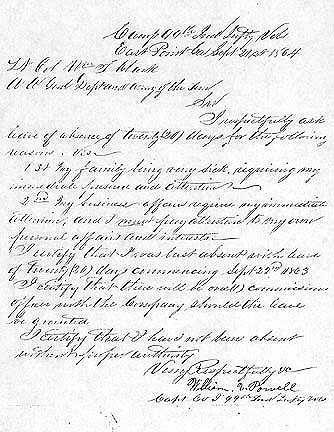 Camp 99th Ind Infty Vols
East Point Ga Sept 21st 1864
Lt Col Wm T Clark
A A Genl Dept and Army of the Ten
Sir
I respectfully ask
leave of absence of twenty (20) days for the following
reasons. Viz
1st My family being very sick, requiring my
immediate presence and attention
2nd My business affairs require my immediate
attention, and I must pay attention to my own
personal affairs and interests
I certify that I was last absent with leave
of twenty (20) days commencing Sept 22nd 1863
I certify that there will be one (1) commissioned
officer with the Company should the leave
be granted
I certify that I have not been absent
without proper authority
Very Respectfully &c
William V. Powell
Capt Co I 99th Ind Infty Vols